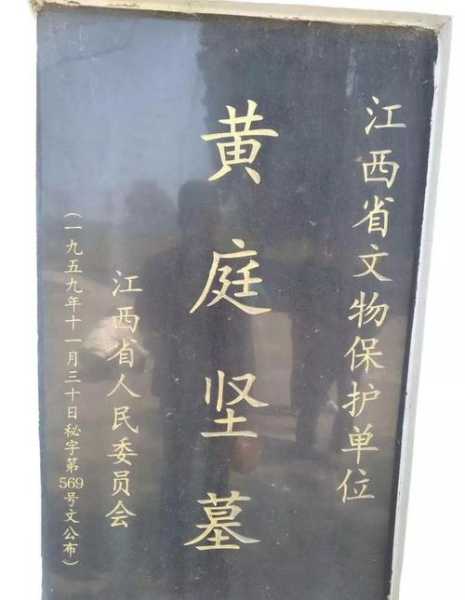 江西省文物保护单位
黄庭坚墓
江西省人民委员会
（一九五九年十一月三十日秘字第569号文公布）